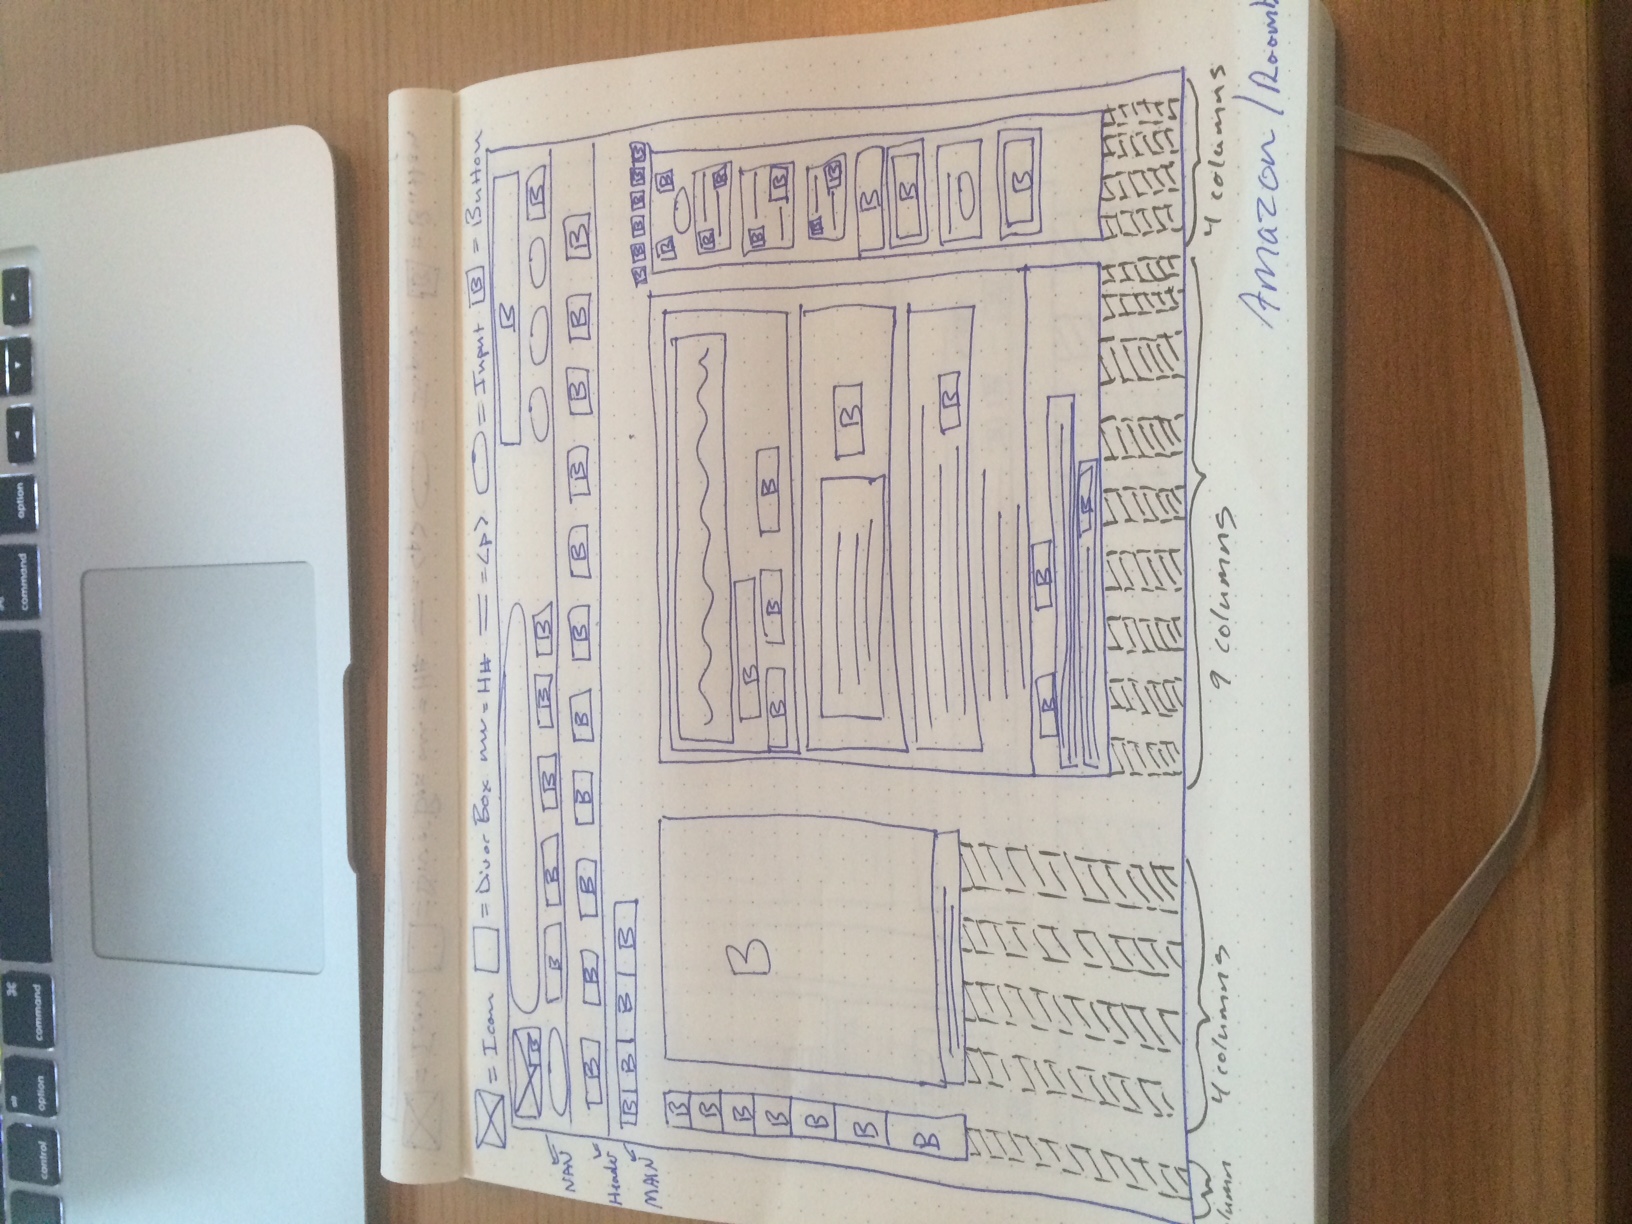 control alt option ⌘ command ⌘ command option ◄ ▼ ►
= Icon = Div or Box = H# = <p> = Input B = Button
B
B
NAV
B B B B B B
B B B B B B B B B B B
Header
B B B B
MAIN
B B B B B B
B B B
B
B B
B B
B B B B
B
B B
B
B B
B
B B
B
B B
B
B
B
B B
B
4 columns 9 columns 4 columns
Amazon /